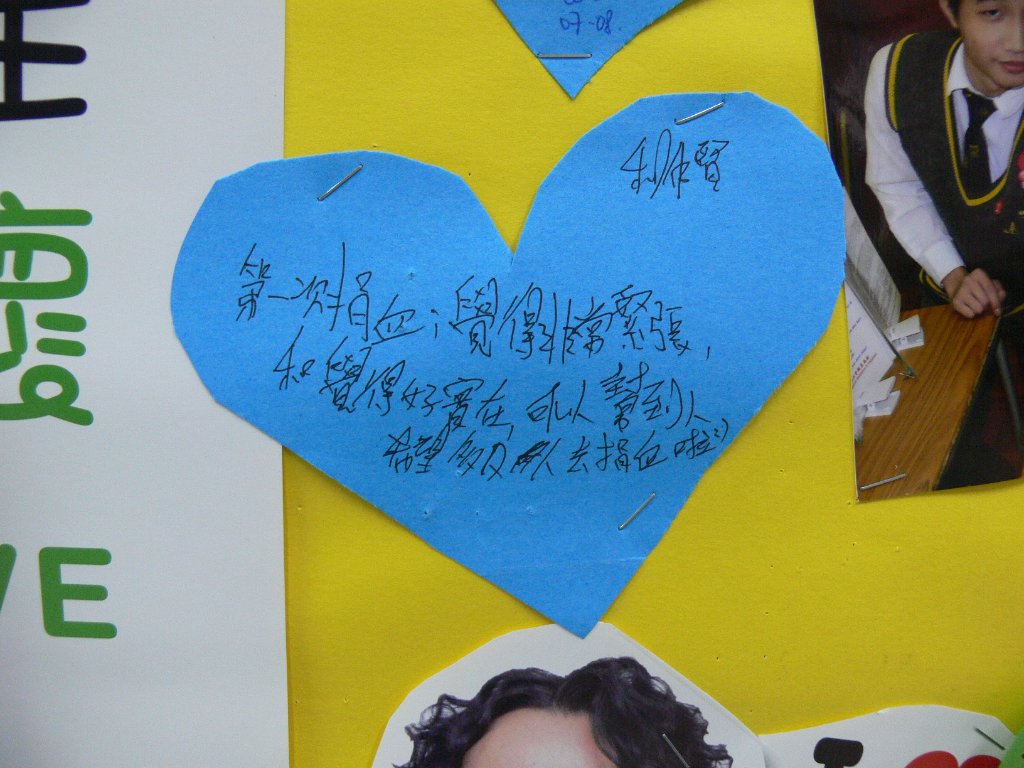 07-08.
賢
第一次捐血，覺得非常緊張，
和覺得好實在，可以幫到人
希望多D人去捐血啦:)
VE
I